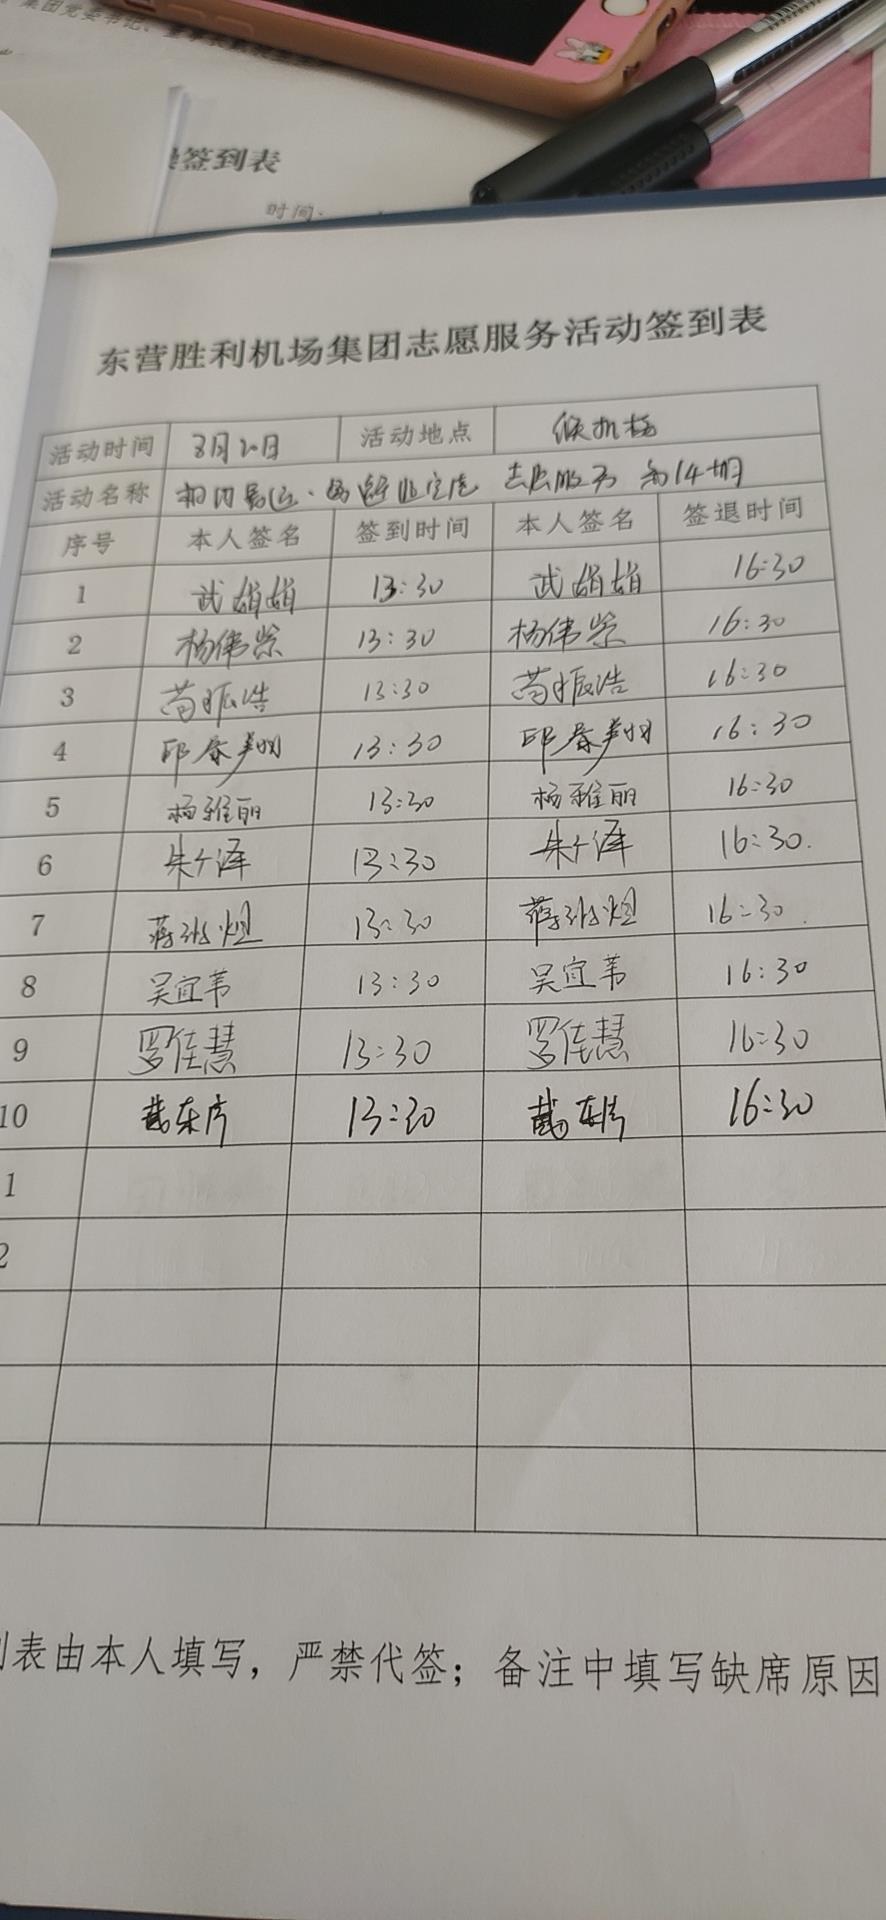 集团党委书记、
签到表
时间:
东营胜利机场集团志愿服务活动签到表
活动时间 8月20日 活动地点 候机楼
活动名称 志愿服务 第14期
序号 本人签名 签到时间 本人签名 签退时间
1 武娟娟 13:30 武娟娟 16:30
2 杨伟 13:30 杨伟 16:30
3 苟振浩 13:30 苟振浩 16:30
4 邱春翔 13:30 邱春翔 16:30
5 杨雅丽 13:30 杨雅丽 16:30
6 朱个泽 13:30 朱个泽 16:30
7 蒋 13:30 蒋 16:30
8 吴宜苇 13:30 吴宜苇 16:30
9 罗佳慧 13:30 罗佳慧 16:30
10 东 13:30 东 16:30
1
2
到表由本人填写，严禁代签；备注中填写缺席原因